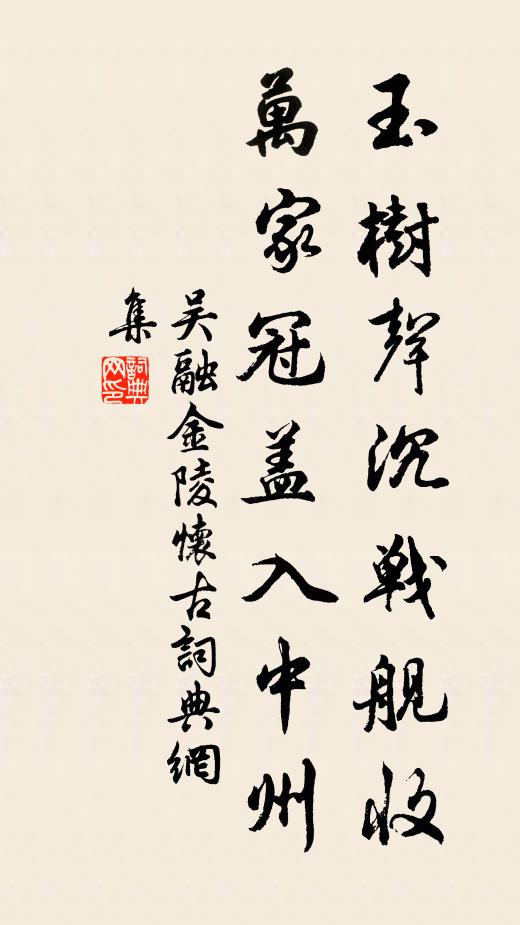 玉樹聲沉戰艦收
萬家冠蓋入中州
吴融金陵懷古詞典網
集
詞典网印